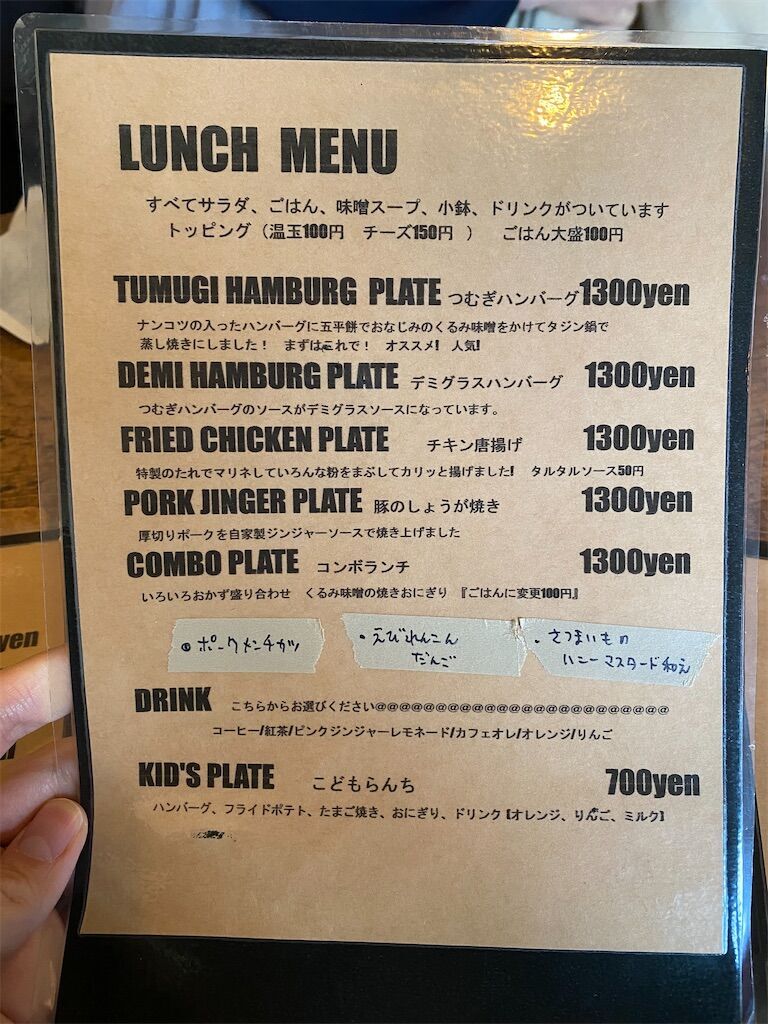 LUNCH MENU
すべてサラダ、ごはん、味噌スープ、小鉢、ドリンクがついています
トッピング（温玉100円　チーズ150円　）　ごはん大盛100円
TUMUGI HAMBURG PLATE つむぎハンバーグ 1300yen
ナンコツの入ったハンバーグに五平餅でおなじみのくるみ味噌をかけてタジン鍋で
蒸し焼きにしました！　まずはこれで！　オススメ!　人気!
DEMI HAMBURG PLATE デミグラスハンバーグ 1300yen
つむぎハンバーグのソースがデミグラスソースになっています。
FRIED CHICKEN PLATE チキン唐揚げ 1300yen
特製のたれでマリネしていろんな粉をまぶしてカリッと揚げました!　タルタルソース50円
PORK JINGER PLATE 豚のしょうが焼き 1300yen
厚切りポークを自家製ジンジャーソースで焼き上げました
COMBO PLATE コンボランチ 1300yen
いろいろおかず盛り合わせ　くるみ味噌の焼きおにぎり　『ごはんに変更100円』
・ポークメンチカツ
・えびれんこん
だんご
・さつまいもの
ハニーマスタード和え
DRINK こちらからお選びください@@@@@@@@@@@@@@@@@@@@@@@@@
コーヒー/紅茶/ピンクジンジャーレモネード/カフェオレ/オレンジ/りんご
KID'S PLATE こどもらんち 700yen
ハンバーグ、フライドポテト、たまご焼き、おにぎり、ドリンク【オレンジ、りんご、ミルク】
yen